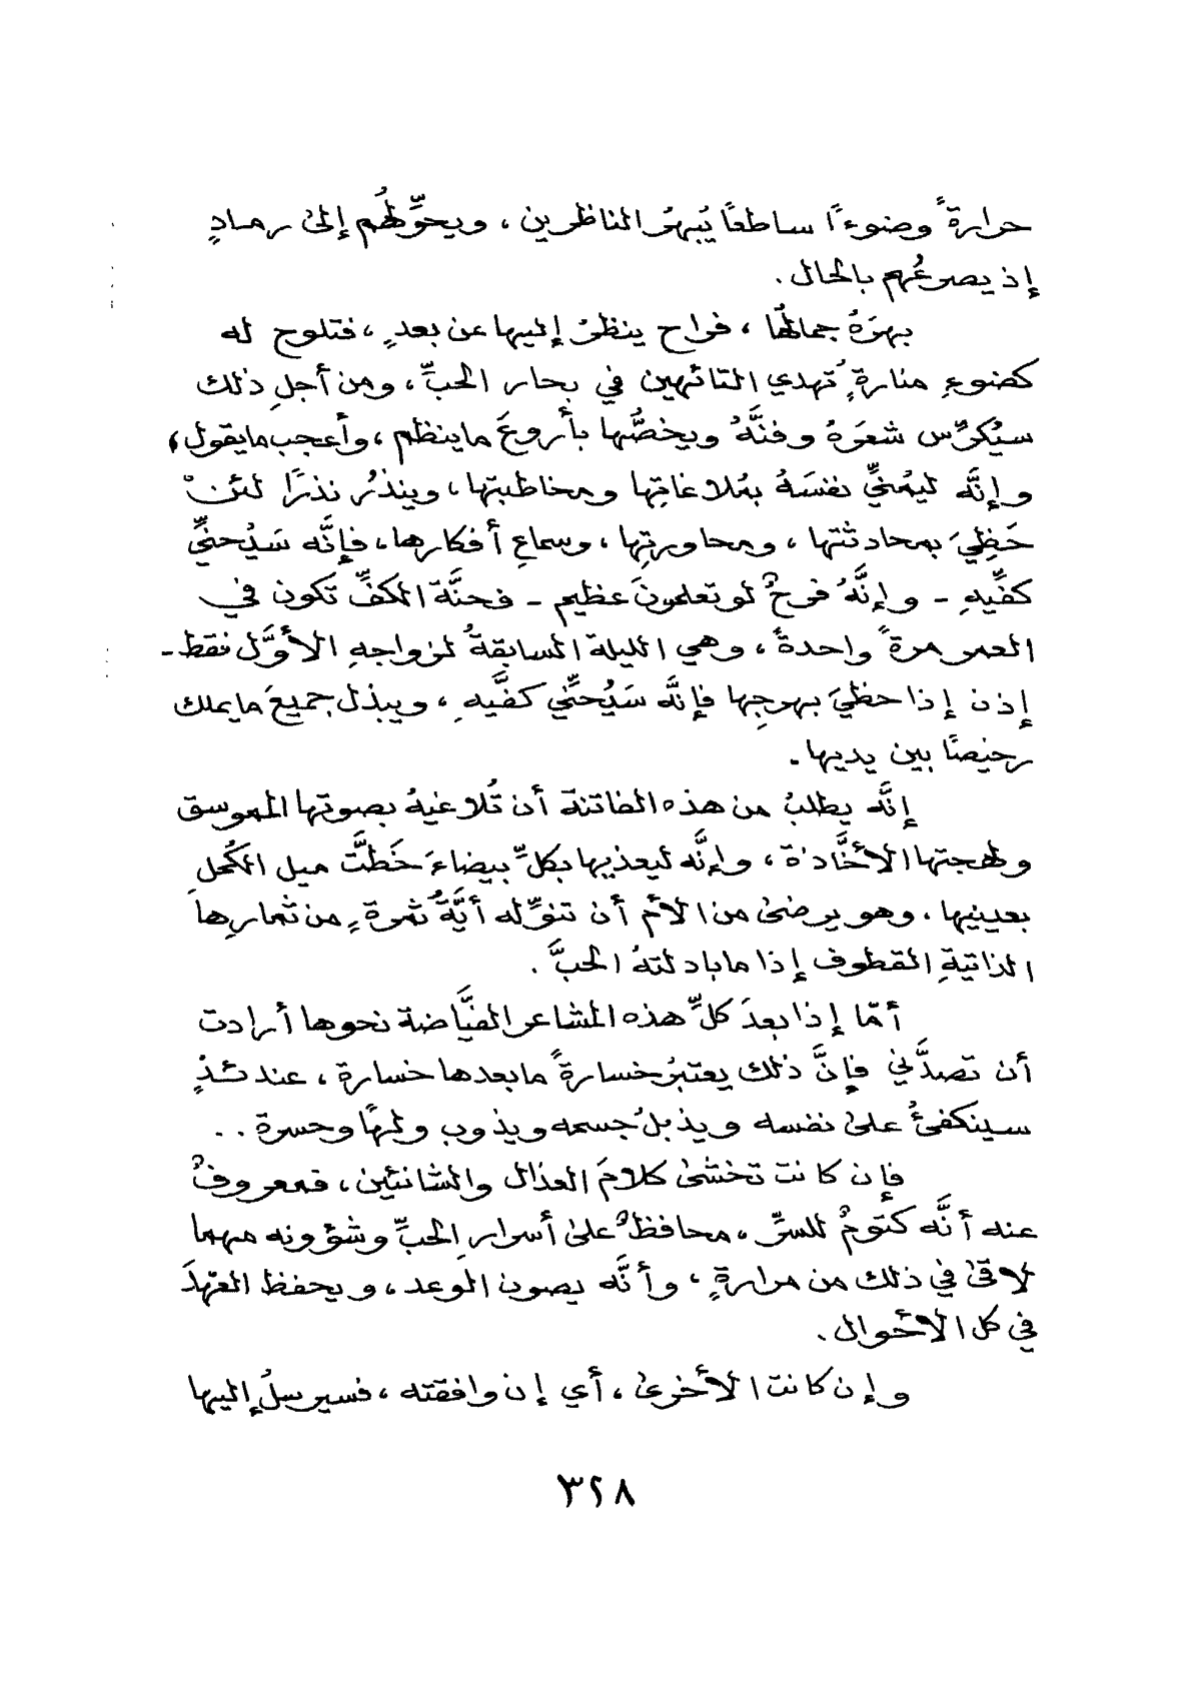 حرارةً وضوءاً ساطعاً يُبهرُ الناظرين ، ويحوِّلهُم إلى رمادٍ
إذ يصرعُهم بالحال .
بهرَهُ جمالُها ، فراح ينظرُ إليها عن بعدٍ ، فتلوح له
كضوءِ منارةٍ تُهدي التائهين في بحار الحبِّ ، ومن أجلِ ذلك
سيُكرِّس شعرَهُ وفنَّهُ ويخصُّها بأروعَ ماينظم ، وأعجب مايقول ،
وإنَّه ليُمنيِّ نفسَهُ بمُلاغاتِها ومخاطبتها ، وينذرُ نذراً لئنْ
حَظِيَ بمحادثتها ، ومحاورتِها ، وسماعِ أفكارها ، فإنَّه سَيُحنيِّ
كفَّيهِ - وإنَّهُ فرحٌ لو تعلمونَ عظيم - فحنَّة الكفِّ تكون في
العمر مرةً واحدةً ، وهي الليلة السابقةُ لزواجهِ الأوَّل فقط -
إذن إذا حظيَ بهرجِها فإنَّه سَيُحنِّي كفَّيهِ ، ويبذل جميعَ مايملك
رخيصاً بين يديها .
إنَّه يطلبُ من هذه الفاتنة أن تُلاغيهُ بصوتها الموسق
ولهجتها الأخَّاذة ، وإنَّه ليعذيها بكلِّ بيضاءَ خَطَّت ميل الكُحلِ
بعينيها ، وهو يرضى من الأم أن تنوِّله أيَّةُ ثمرةٍ من ثمارِها
الذاتيةِ القطوف إذا مابادلتهُ الحبَّ .
أمّا إذا بعدَ كلِّ هذه المشاعر الفيَّاضة نحوها أرادت
أن تصدَّني فإنَّ ذلك يعتبرُ خسارةً مابعدها خسارة ، عندئذٍ
سينكفئُ على نفسه ويذبلُ جسمه ويذوب ولهاً وحسرة . .
فإن كانت تخشى كلامَ العذال والشانئين ، فمعروفٌ
عنه أنَّه كتومٌ للسرِّ ، محافظٌ على أسرارِ الحبِّ وشؤونه مهما
لاقى في ذلك من مرارةٍ ، وأنَّه يصون الوعد ، ويحفظ العهدَ
في كل الأحوال .
وإن كانت الأخرى ، أي إن وافقته ، فسيرسلُ إليها
٣٢٨